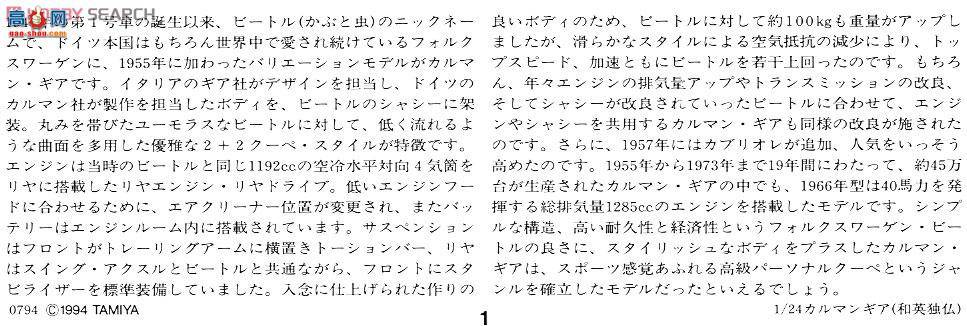 第1号車の誕生以来、ビートル(かぶと虫)のニックネー
ムで、ドイツ本国はもちろん世界中で愛され続けているフォルク
スワーゲンに、1955年に加わったバリエーションモデルがカルマ
ン・ギアです。イタリアのギア社がデザインを担当し、ドイツの
カルマン社が製作を担当したボディを、ビートルのシャシーに架
装。丸みを帯びたユーモラスなビートルに対して、低く流れるよ
うな曲面を多用した優雅な2+2クーペ・スタイルが特徴です。
エンジンは当時のビートルと同じ1192ccの空冷水平対向4気筒を
リヤに搭載したリヤエンジン・リヤドライブ。低いエンジンフー
ドに合わせるために、エアクリーナー位置が変更され、またバッ
テリーはエンジンルーム内に搭載されています。サスペンション
はフロントがトレーリングアームに横置きトーションバー、リヤ
はスイング・アクスルとビートルと共通ながら、フロントにスタ
ビライザーを標準装備していました。入念に仕上げられた作りの
良いボディのため、ビートルに対して約100kgも重量がアップし
ましたが、滑らかなスタイルによる空気抵抗の減少により、トッ
プスピード、加速ともにビートルを若干上回ったのです。もちろ
ん、年々エンジンの排気量アップやトランスミッションの改良、
そしてシャシーが改良されていったビートルに合わせて、エンジ
ンやシャシーを共用するカルマン・ギアも同様の改良が施された
のです。さらに、1957年にはカブリオレが追加、人気をいっそう
高めたのです。1955年から1973年まで19年間にわたって、約45万
台が生産されたカルマン・ギアの中でも、1966年型は40馬力を発
揮する総排気量1285ccのエンジンを搭載したモデルです。シンプ
ルな構造、高い耐久性と経済性というフォルクスワーゲン・ビー
トルの良さに、スタイリッシュなボディをプラスしたカルマン・
ギアは、スポーツ感覚あふれる高級パーソナルクーペというジャ
ンルを確立したモデルだったといえるでしょう。
0794 ©1994 TAMIYA
1
1/24カルマンギア(和英独仏)